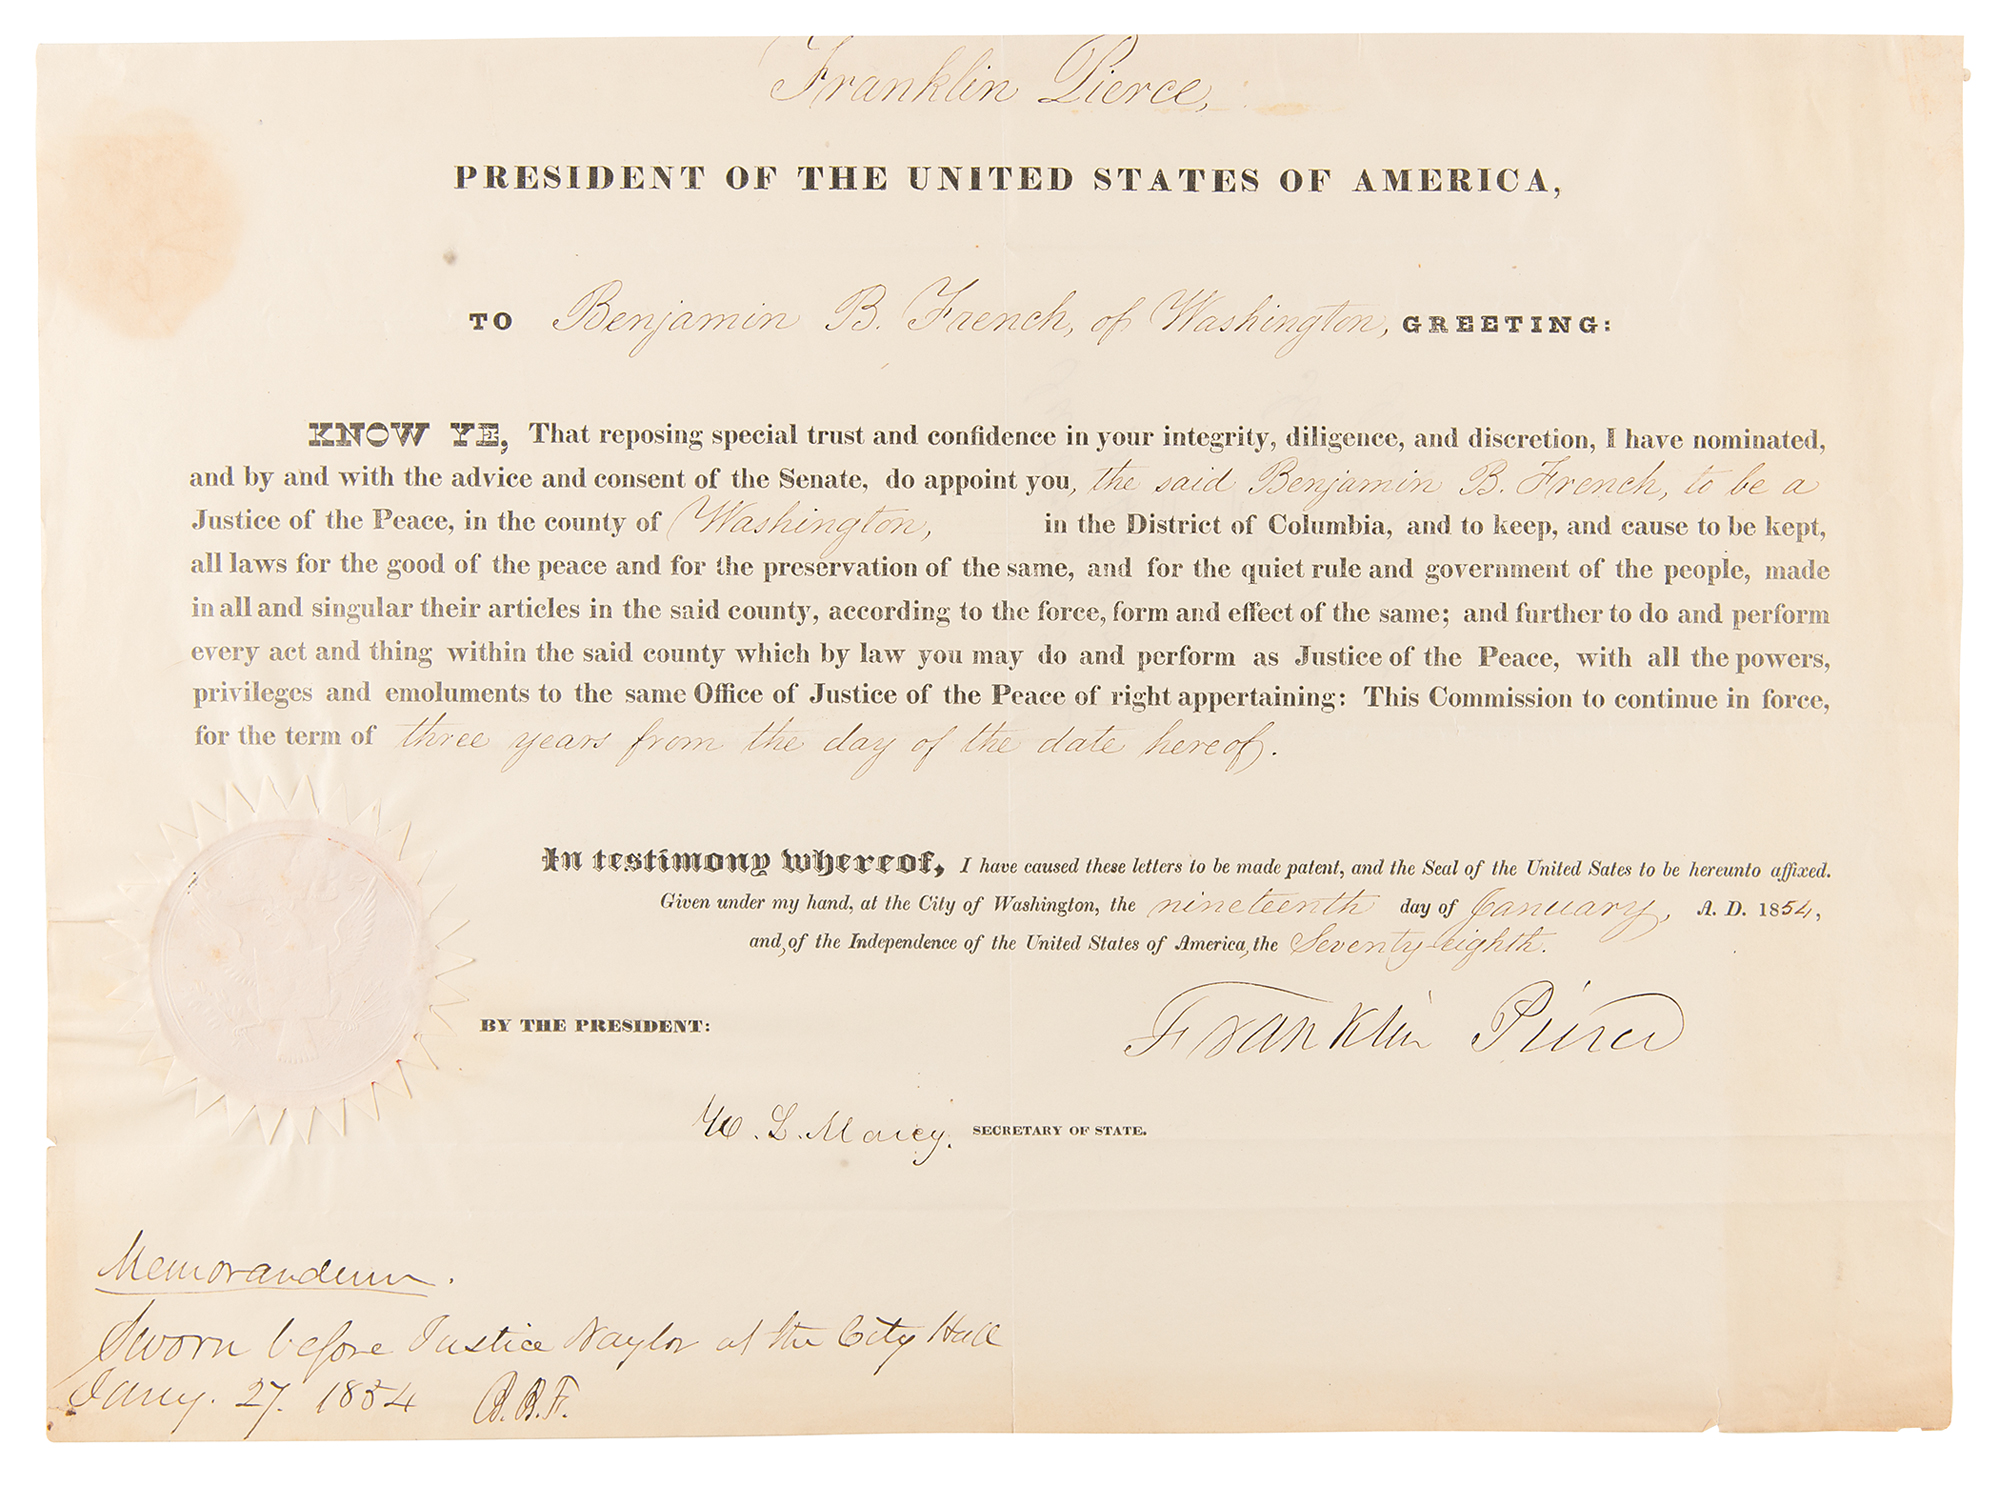 Franklin Pierce,
PRESIDENT OF THE UNITED STATES OF AMERICA,
TO Benjamin B. French, of Washington, GREETING:
KNOW YE, That reposing special trust and confidence in your integrity, diligence, and discretion, I have nominated,
and by and with the advice and consent of the Senate, do appoint you, the said Benjamin B. French, to be a
Justice of the Peace, in the county of Washington, in the District of Columbia, and to keep, and cause to be kept,
all laws for the good of the peace and for the preservation of the same, and for the quiet rule and government of the people, made
in all and singular their articles in the said county, according to the force, form and effect of the same; and further to do and perform
every act and thing within the said county which by law you may do and perform as Justice of the Peace, with all the powers,
privileges and emoluments to the same Office of Justice of the Peace of right appertaining: This Commission to continue in force,
for the term of three years from the day of the date hereof.
In testimony whereof, I have caused these letters to be made patent, and the Seal of the United Sates to be hereunto affixed.
Given under my hand, at the City of Washington, the nineteenth day of January, A. D. 1854,
and, of the Independence of the United States of America, the Seventy-eighth.
Franklin Pierce
BY THE PRESIDENT:
W. L. Marcy. SECRETARY OF STATE.
Memorandum.
Sworn before Justice Naylor at the City Hall
Jany. 27. 1854 B. B. F.